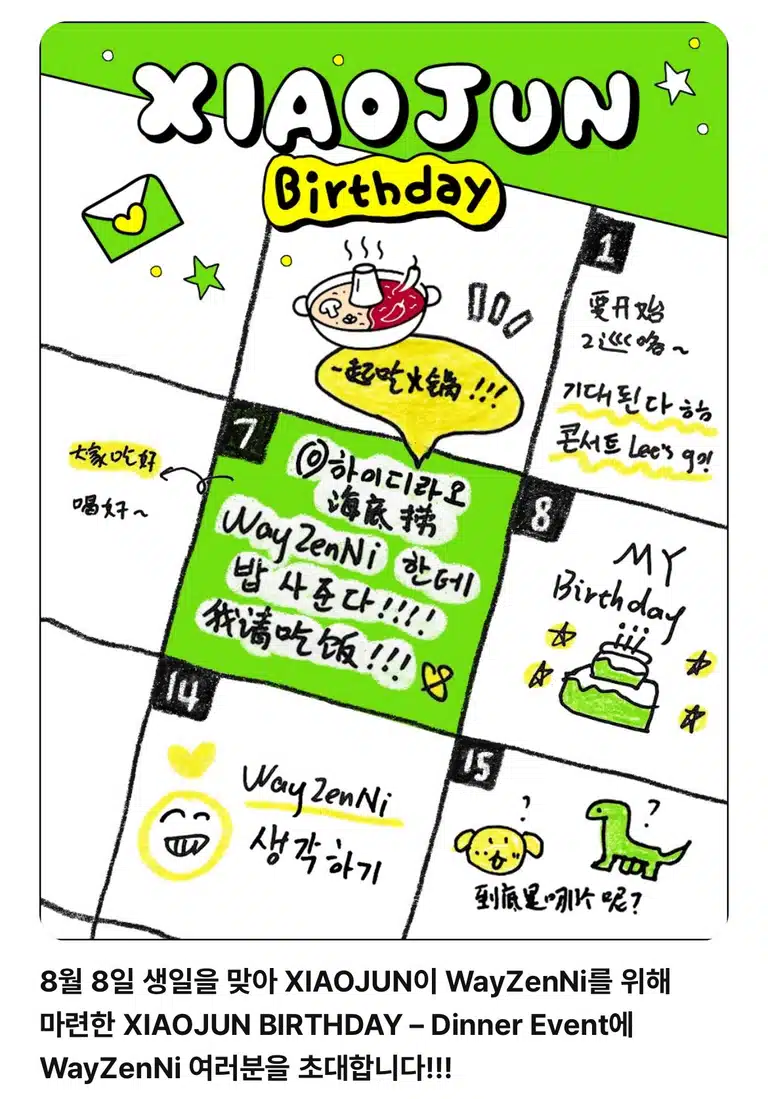 XIAOJUN
Birthday
1
要开始
2巡咯~
기대된다 ㅎㅎ
콘서트 Let's go!
一起吃火锅!!!
7
@하이디라오
海底捞
WayZenNi 한테
밥 사준다!!!!
我请吃饭!!!
大家吃好
喝好~
8
MY
Birthday
14
WayZenNi
생각하기
15
?
?
到底是哪个呢?
8월 8일 생일을 맞아 XIAOJUN이 WayZenNi를 위해
마련한 XIAOJUN BIRTHDAY – Dinner Event에
WayZenNi 여러분을 초대합니다!!!